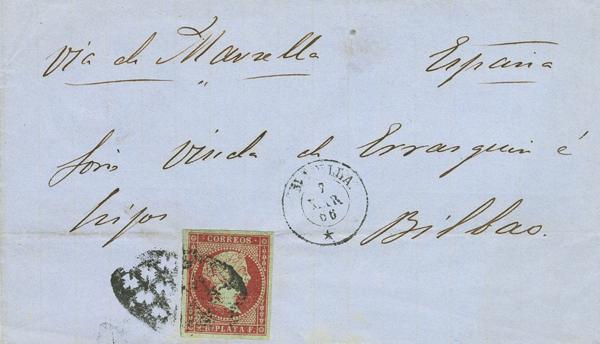 via de Marsella España
Sres Viuda de Errasquin é
hijos Bilbao.
MANILA
7
MAR
66
CORREOS
PLATA F.